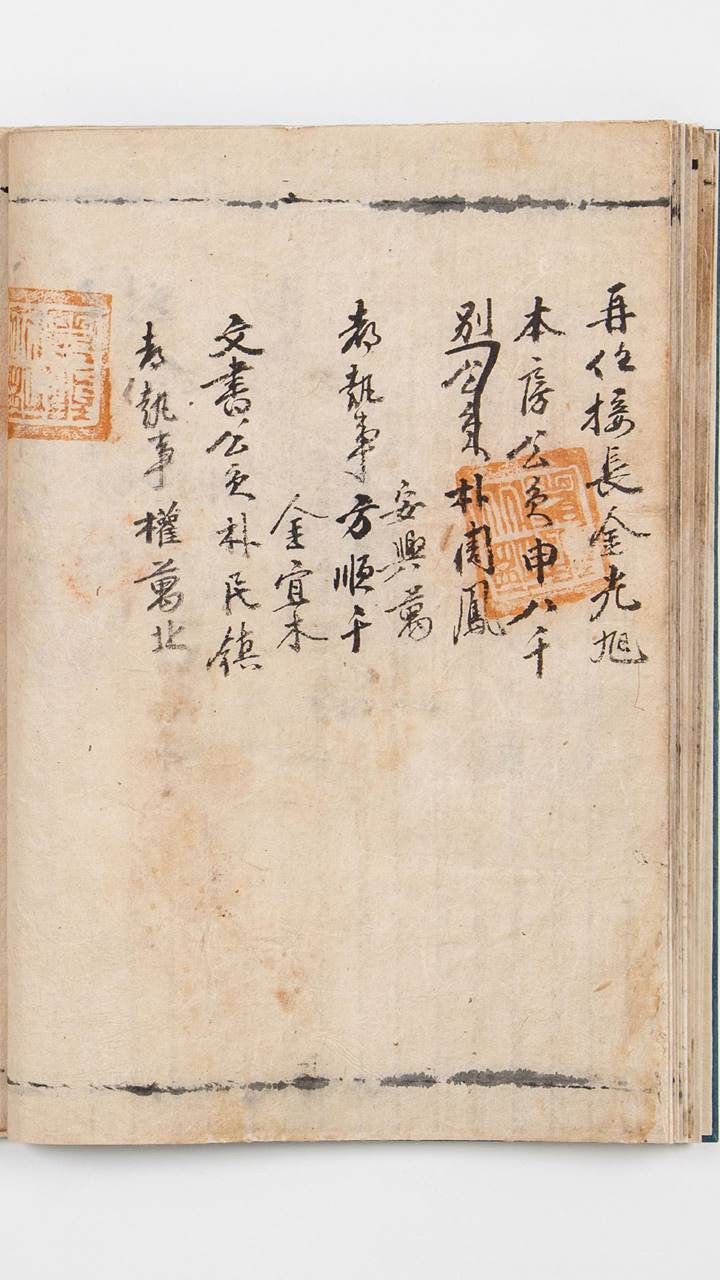 再任接長金光旭
本房公員申八千
別公員朴周鳳
安興萬
都執事方順千
金宜木
文書公員朴民鎮
都執事權萬北